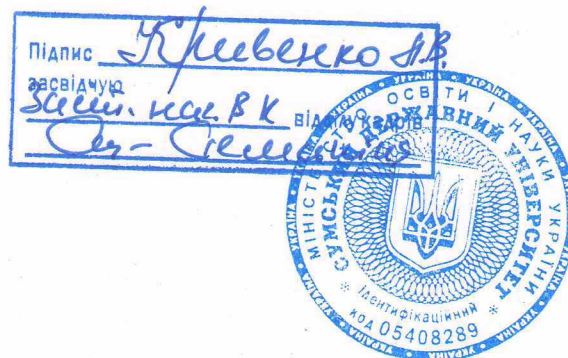 Підпис Кривенко А.В.
засвідчую
Заст. нач. ВК відділу кадрів
МІНІСТЕРСТВО ОСВІТИ І НАУКИ УКРАЇНИ
СУМСЬКИЙ ДЕРЖАВНИЙ УНІВЕРСИТЕТ
Ідентифікаційний
код 05408289
УКРАЇНА * УКРАЇНА * УКРАЇНА * УКРАЇНА * УКРАЇНА * УКРАЇНА